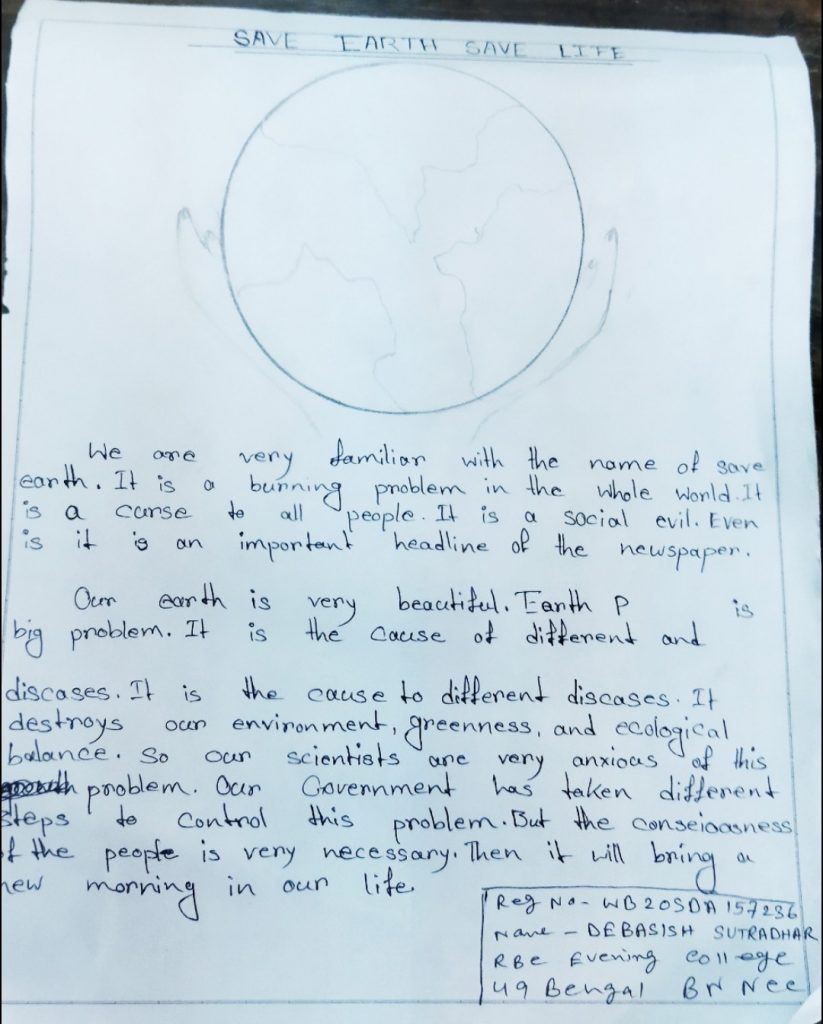 SAVE EARTH SAVE LIFE
We are very familiar with the name of save
earth. It is a burning problem in the whole world. It
is a curse to all people. It is a social evil. Even
is it is an important headline of the newspaper.
Our earth is very beautiful. Earth P is
big problem. It is the cause of different and
discases. It is the cause to different discases. It
destroys our environment, greenness, and ecological
balance. So our scientists are very anxious of this
problem. Our Government has taken different
steps to control this problem. But the conseiousness
of the people is very necessary. Then it will bring a
new morning in our life.
Reg No- WB20SDA157236
Name - DEBASISH SUTRADHAR
RBC Evening College
49 Bengal BN NCC